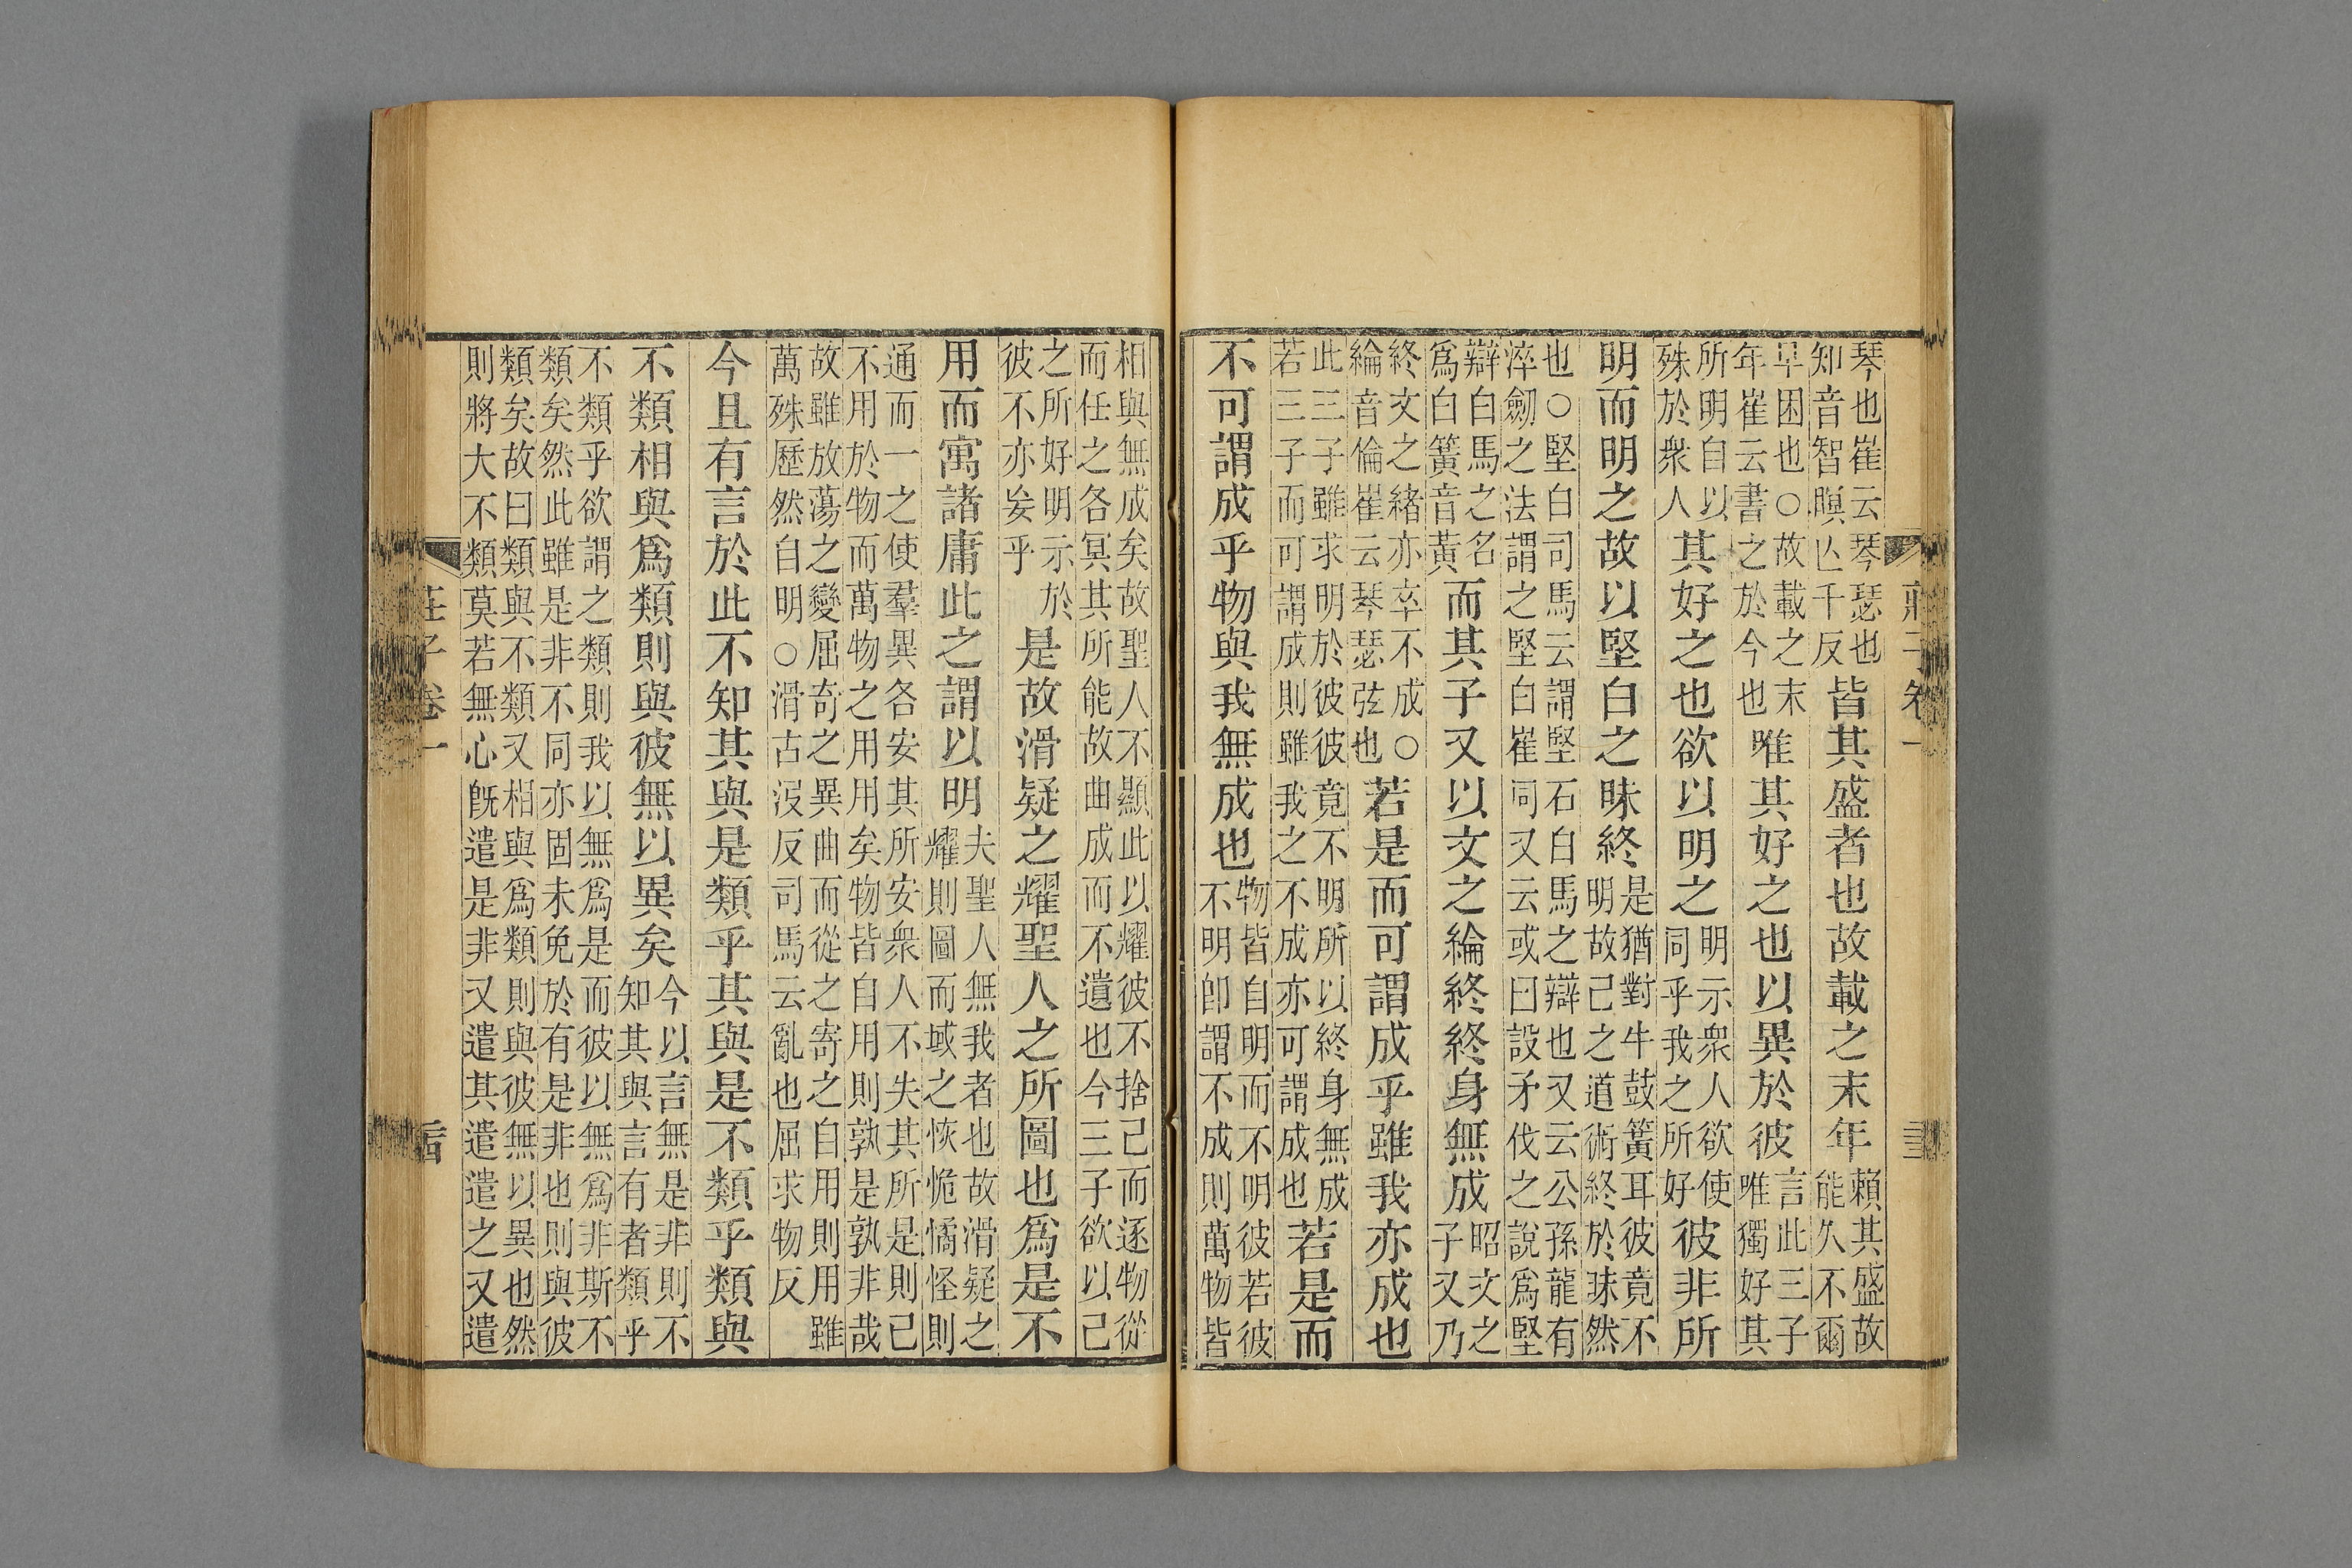 莊子卷一
琴也崔云琴瑟也知音智瞑亾千反皆其盛者也故載之末年賴其盛故能久不爾
早困也○故載之末年崔云書之於今也唯其好之也以異於彼言此三子唯獨好其
所明自以殊於衆人其好之也欲以明之明示衆人欲使同乎我之所好彼非所
明而明之故以堅白之昧終是猶對牛鼓簧耳彼竟不明故己之道術終於昧然
也○堅白司馬云謂堅石白馬之辯也又云公孫龍有淬劒之法謂之堅白崔同又云或曰設矛伐之說爲堅
辯白馬之名爲白簧音黃而其子又以文之綸終終身無成昭文之子又乃
終文之緒亦卒不成○綸音倫崔云琴瑟弦也若是而可謂成乎雖我亦成也
此三子雖求明於彼彼竟不明所以終身無成若三子而可謂成則雖我之不成亦可謂成也若是而
不可謂成乎物與我無成也物皆自明而不明彼若彼不明卽謂不成則萬物皆
相與無成矣故聖人不顯此以耀彼不捨己而逐物從而任之各冥其所能故曲成而不遺也今三子欲以己
之所好明示於彼不亦妄乎是故滑疑之耀聖人之所圖也爲是不
用而寓諸庸此之謂以明夫聖人無我者也故滑疑之耀則圖而域之恢恑憰怪則
通而一之使羣異各安其所安衆人不失其所是則己不用於物而萬物之用用矣物皆自用則孰是孰非哉
故雖放蕩之變屈奇之異曲而從之寄之自用則用雖萬殊歷然自明○滑古沒反司馬云亂也屈求物反
今且有言於此不知其與是類乎其與是不類乎類與
不類相與爲類則與彼無以異矣今以言無是非則不知其與言有者類乎
不類乎欲謂之類則我以無爲是而彼以無爲非斯不類矣然此雖是非不同亦固未免於有是非也則與彼
類矣故曰類與不類又相與爲類則與彼無以異也然則將大不類莫若無心旣遣是非又遣其遣遣之又遣
莊子卷一